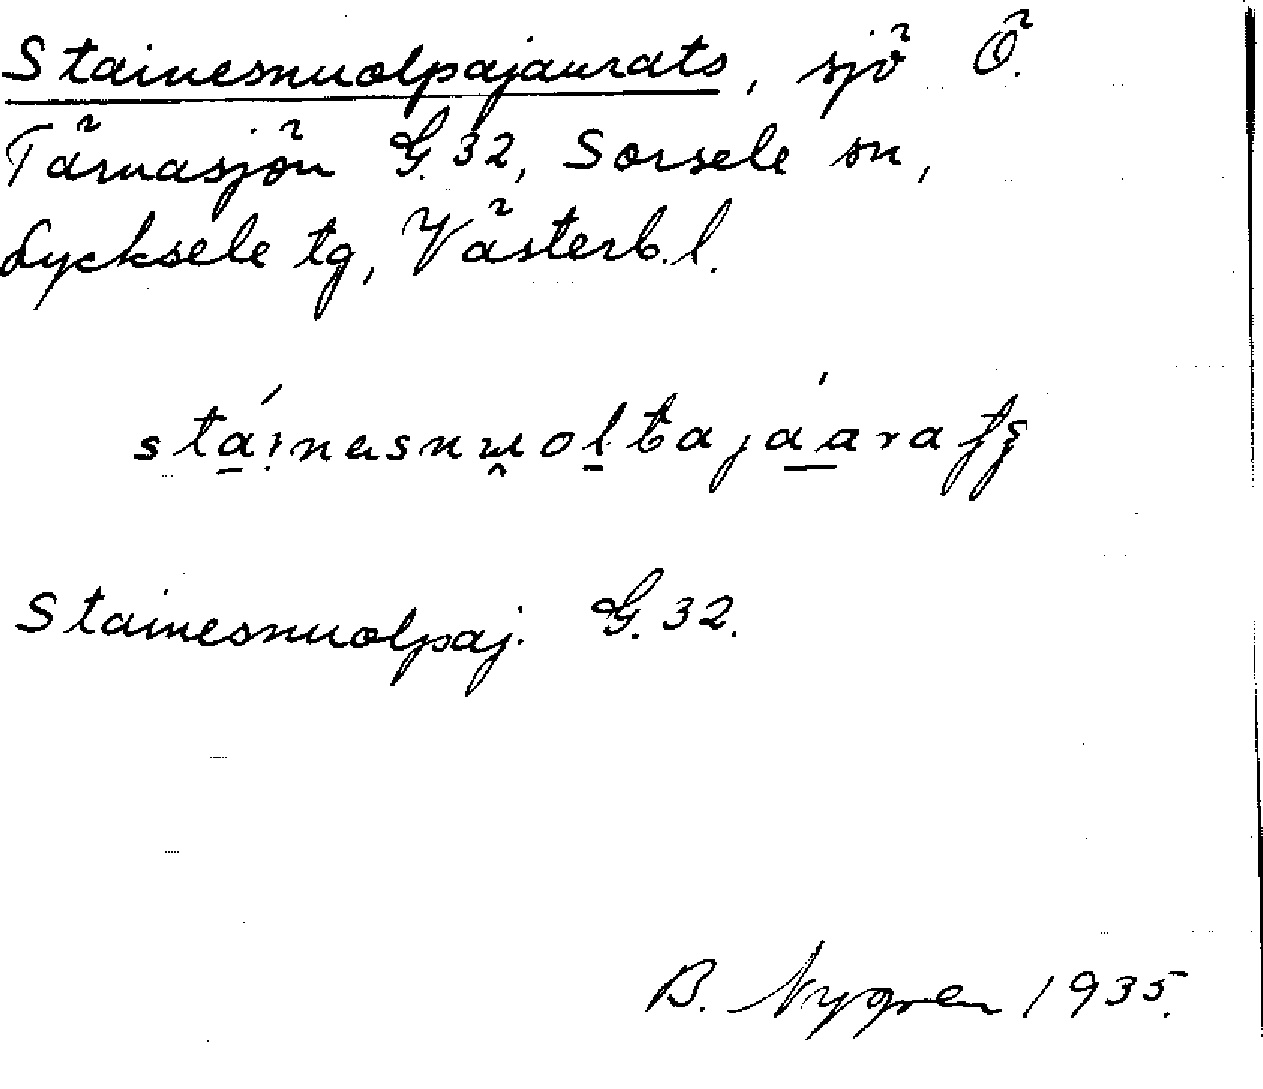 Stainesnuolpajaurats, sjö Ö.
Tärnasjön G.32, Sorsele sn,
Lycksele tg, Västerb.l.
Stainesnuolpaj. G.32.
B. Nygren 1935.